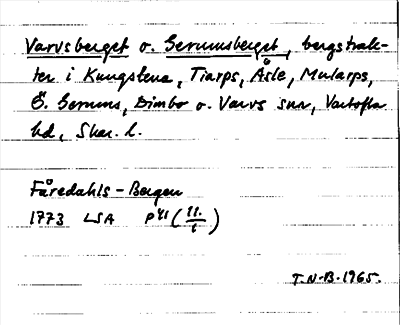 Varvsberget o. Gerumsberget, bergstrak-
ter i Kungslena, Tiarps, Åsle, Mularps,
Ö. Gerums, Dimbo o. Varvs snr, Vartofta
hd, Skar. l.
Fåredahls-Bergen
1773 LSA P 41 (11./1)
T.N-B. 1965.